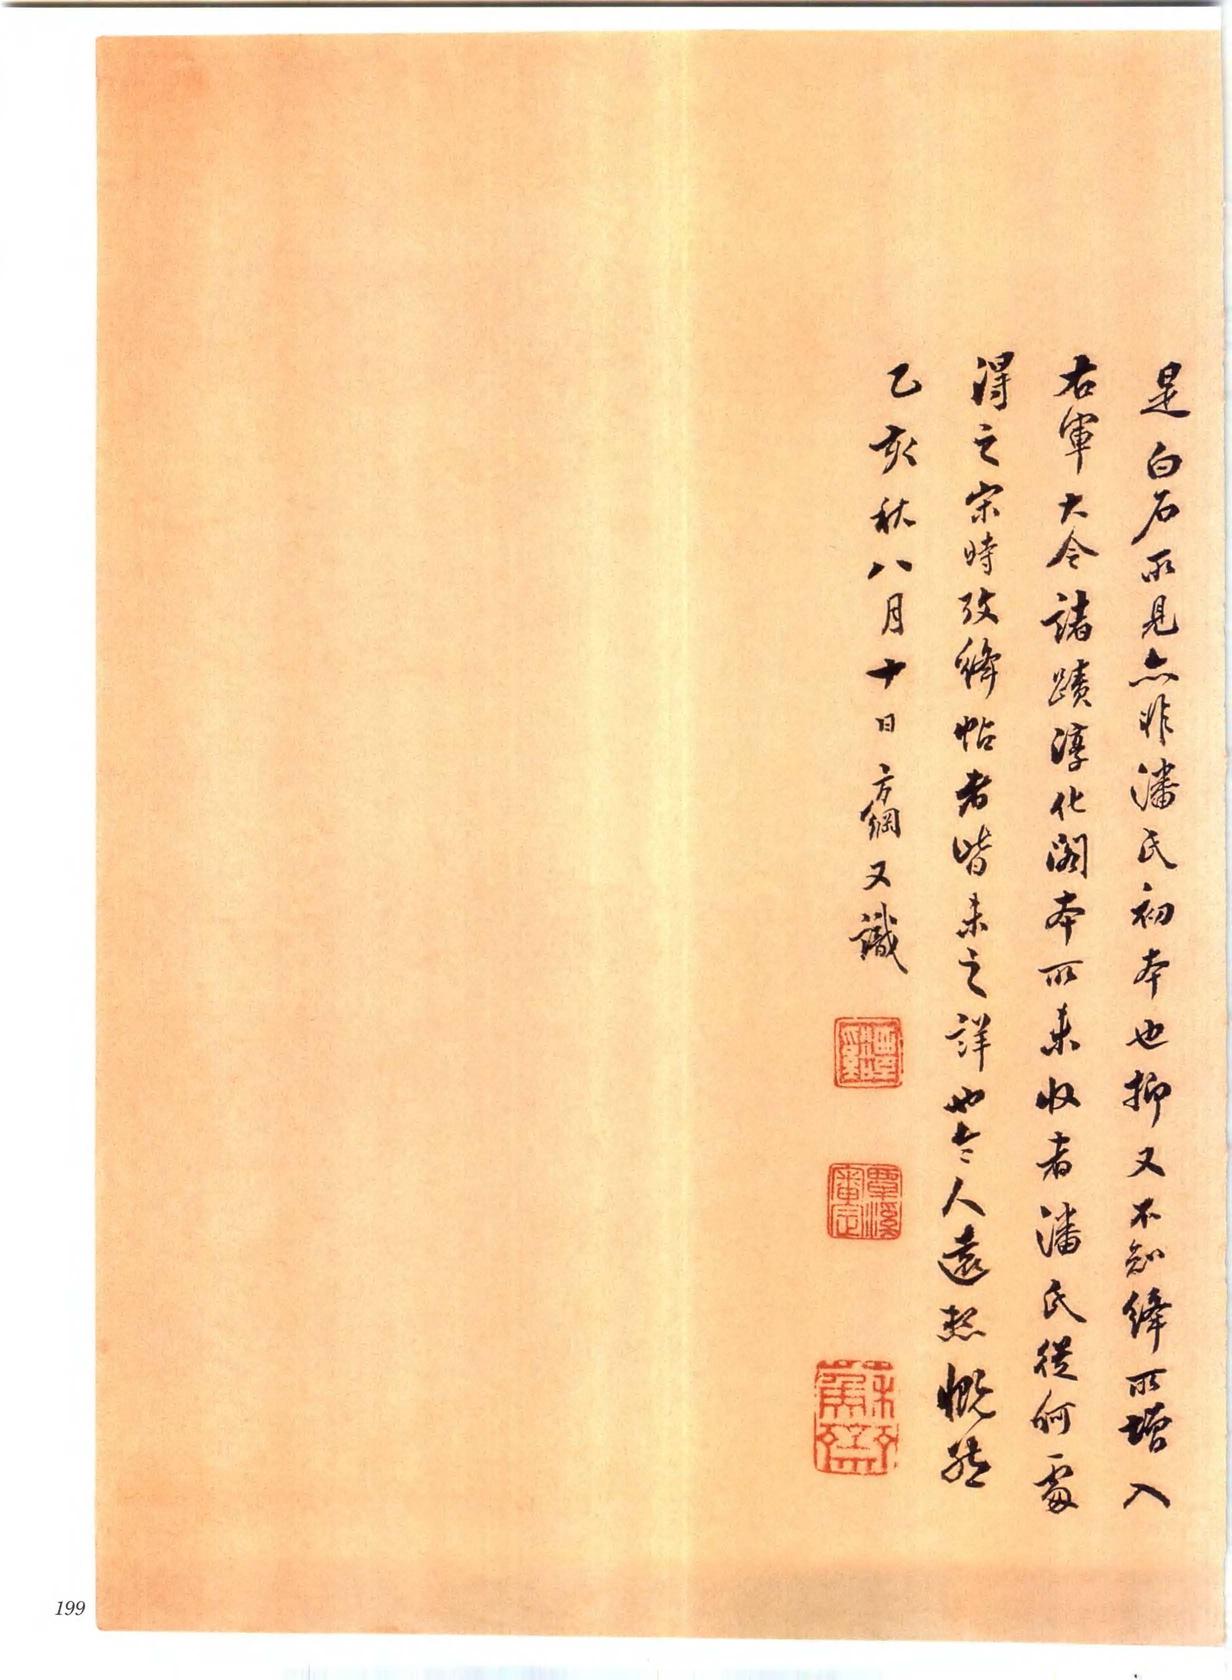 是白石所見亦非潘氏初本也抑又不知絳所增入
右軍大令諸蹟淳化閣本所未收者潘氏從何處
得之宋時攷絳帖者皆未之詳也令人遠想慨然
乙亥秋八月十日方綱又識
覃溪審定
蘇齋
199